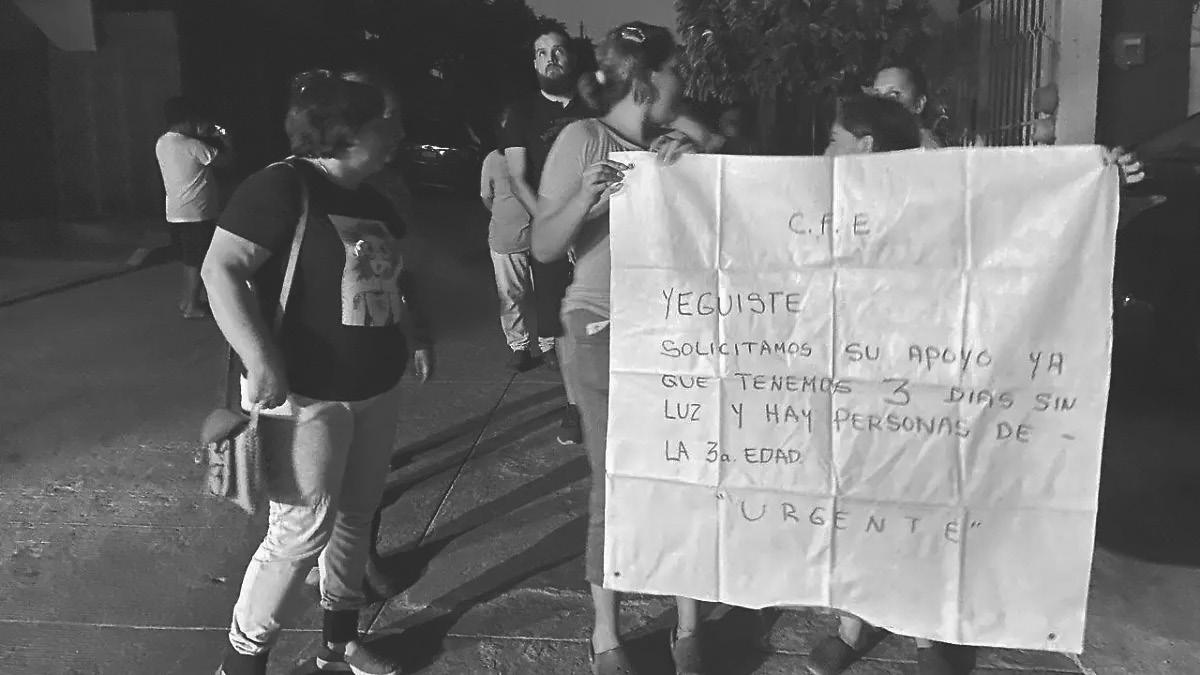 C.F.E
YEGUISTE
SOLICITAMOS SU APOYO YA
QUE TENEMOS 3 DIAS SIN
LUZ Y HAY PERSONAS DE -
LA 3a. EDAD
"URGENTE"